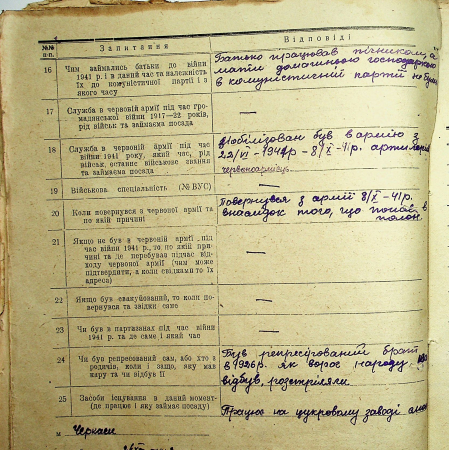 №№ п-п.
Запитання
Відповіді
16
Чим займались батьки до війни
1941 р. і в даний час та належність
їх до комуністичної партії і з
якого часу
Батько працював пічником, а
мати домашньою господаркою
в комуністичній партії не були
17
Служба в червоній армії під час гро-
мадянської війни 1917—22 років,
рід військ та займаєма посада
—
18
Служба в червоній армії під час
війни 1941 року, який час, рід
військ, останнє військове звання
та займаєма посада
Мобілізован був в армію з
22/VI - 1941р - 8/X - 41р.
червоноармієць.
19
Військова спеціальність (№ ВУС)
—
20
Коли повернувся з червоної армії та
по якій причині
Повернувся з армії 8/X - 41р.
внаслідок того, що попав в
полон.
21
Якщо не був в червоній армії під
час війни 1941 р., то по якій при-
чині та де перебував підчас від-
ходу червоної армії (чим може
підтвердити, а коли свідками то їх
адреса)
—
22
Якщо був евакуйований, то коли по-
вернувся та звідки саме
—
23
Чи був в партизанах під час війни
1941 р. та де саме і який час
—
24
Чи був репресований сам, або хто з
родичів, коли і защо, яку мав
кару та чи відбув її
Був репресірований брат
в 1926р. як ворог народу,
відбув, розстріляли
25
Засоби існування в даний момент
(де працює і яку займає посаду)
Працює на цукровому заводі
м Черкаси